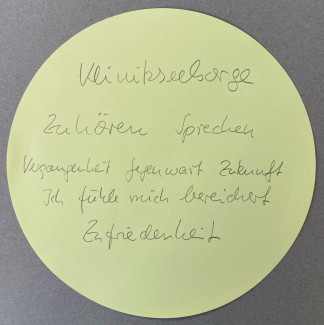 Klinikseelsorge
Zuhören Sprechen
Vergangenheit Gegenwart Zukunft
Ich fühle mich bereichert
Zufriedenheit